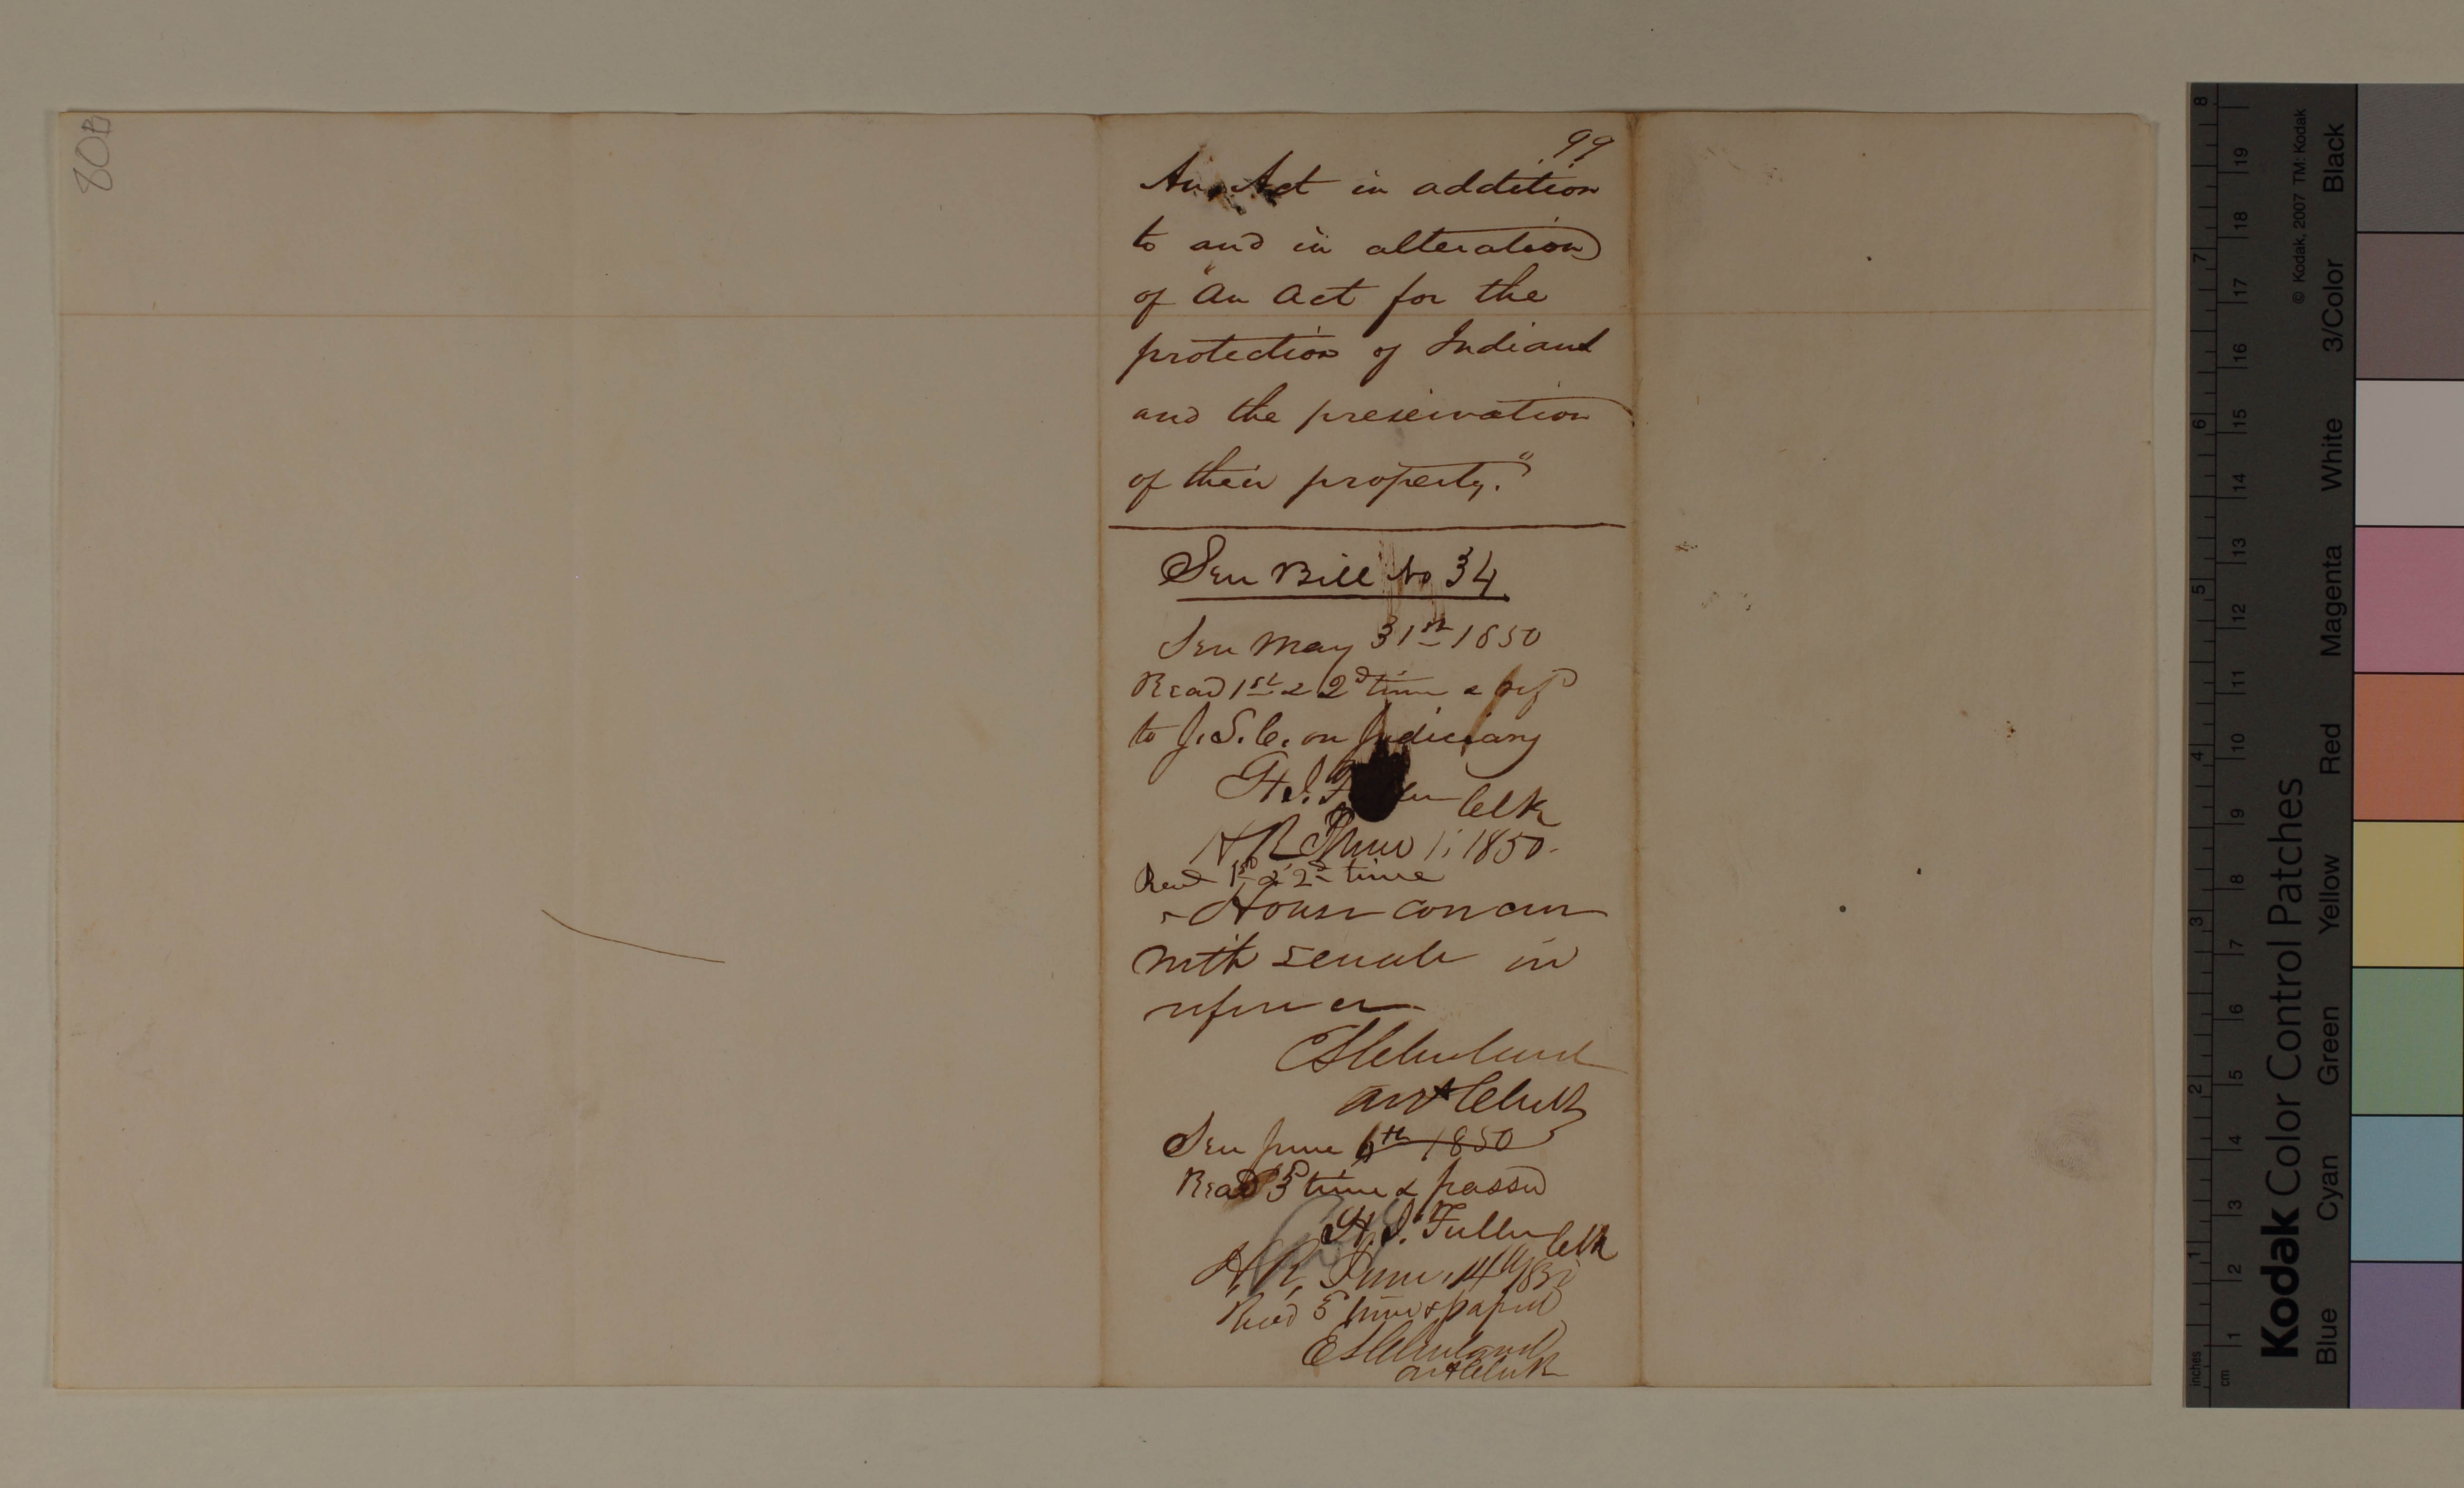 80B
99
An Act in addition
to and in alteration
of "An Act for the
protection of Indians
and the preservation
of their property."
Sen Bill No 34
Sen May 31st 1850
Read 1st & 2d time & refd
to J. S. C. on Judiciary
H. S. Clk
H R June 1, 1850.
Read 1st & 2d time
& House concur
with Senate in
reference
E S Cleveland
asst Clerk
Sen June 6th 1850
Read 3d time & passed
H. S. Fuller Clk
H. R. June 14th 1850
Read 3d time & passed
E S Cleveland
asst Clerk
Kodak Color Control Patches
© Kodak, 2007 TM: Kodak
Blue Cyan Green Yellow Red Magenta White 3/Color Black
inches 1 2 3 4 5 6 7 8
cm 1 2 3 4 5 6 7 8 9 10 11 12 13 14 15 16 17 18 19